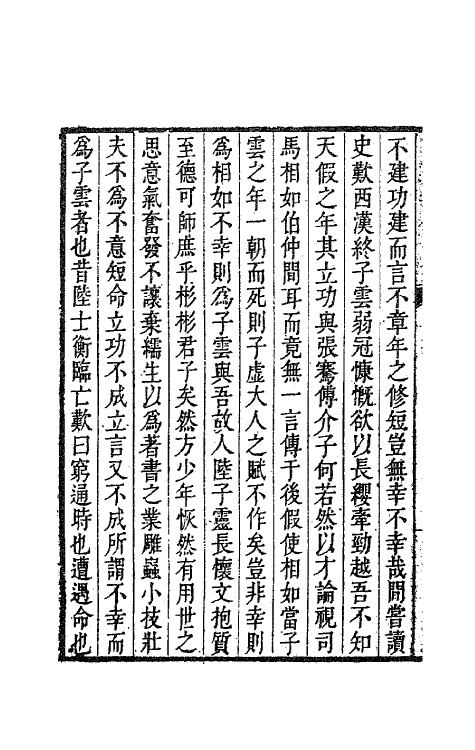 不建功建而言不章年之修短豈無幸不幸哉間嘗讀
史歎西漢終子雲弱冠慷慨欲以長纓牽勁越吾不知
天假之年其立功與張騫傅介子何若然以才論視司
馬相如伯仲間耳而竟無一言傳于後假使相如當子
雲之年一朝而死則子虛大人之賦不作矣豈非幸則
為相如不幸則為子雲與吾故人陸子靈長懷文抱質
至德可師庶乎彬彬君子矣然方少年恢然有用世之
思意氣奮發不讓棄繻生以為著書之業雕蟲小技壯
夫不為不意短命立功不成立言又不成所謂不幸而
為子雲者也昔陸士衡臨亡歎曰窮通時也遭遇命也